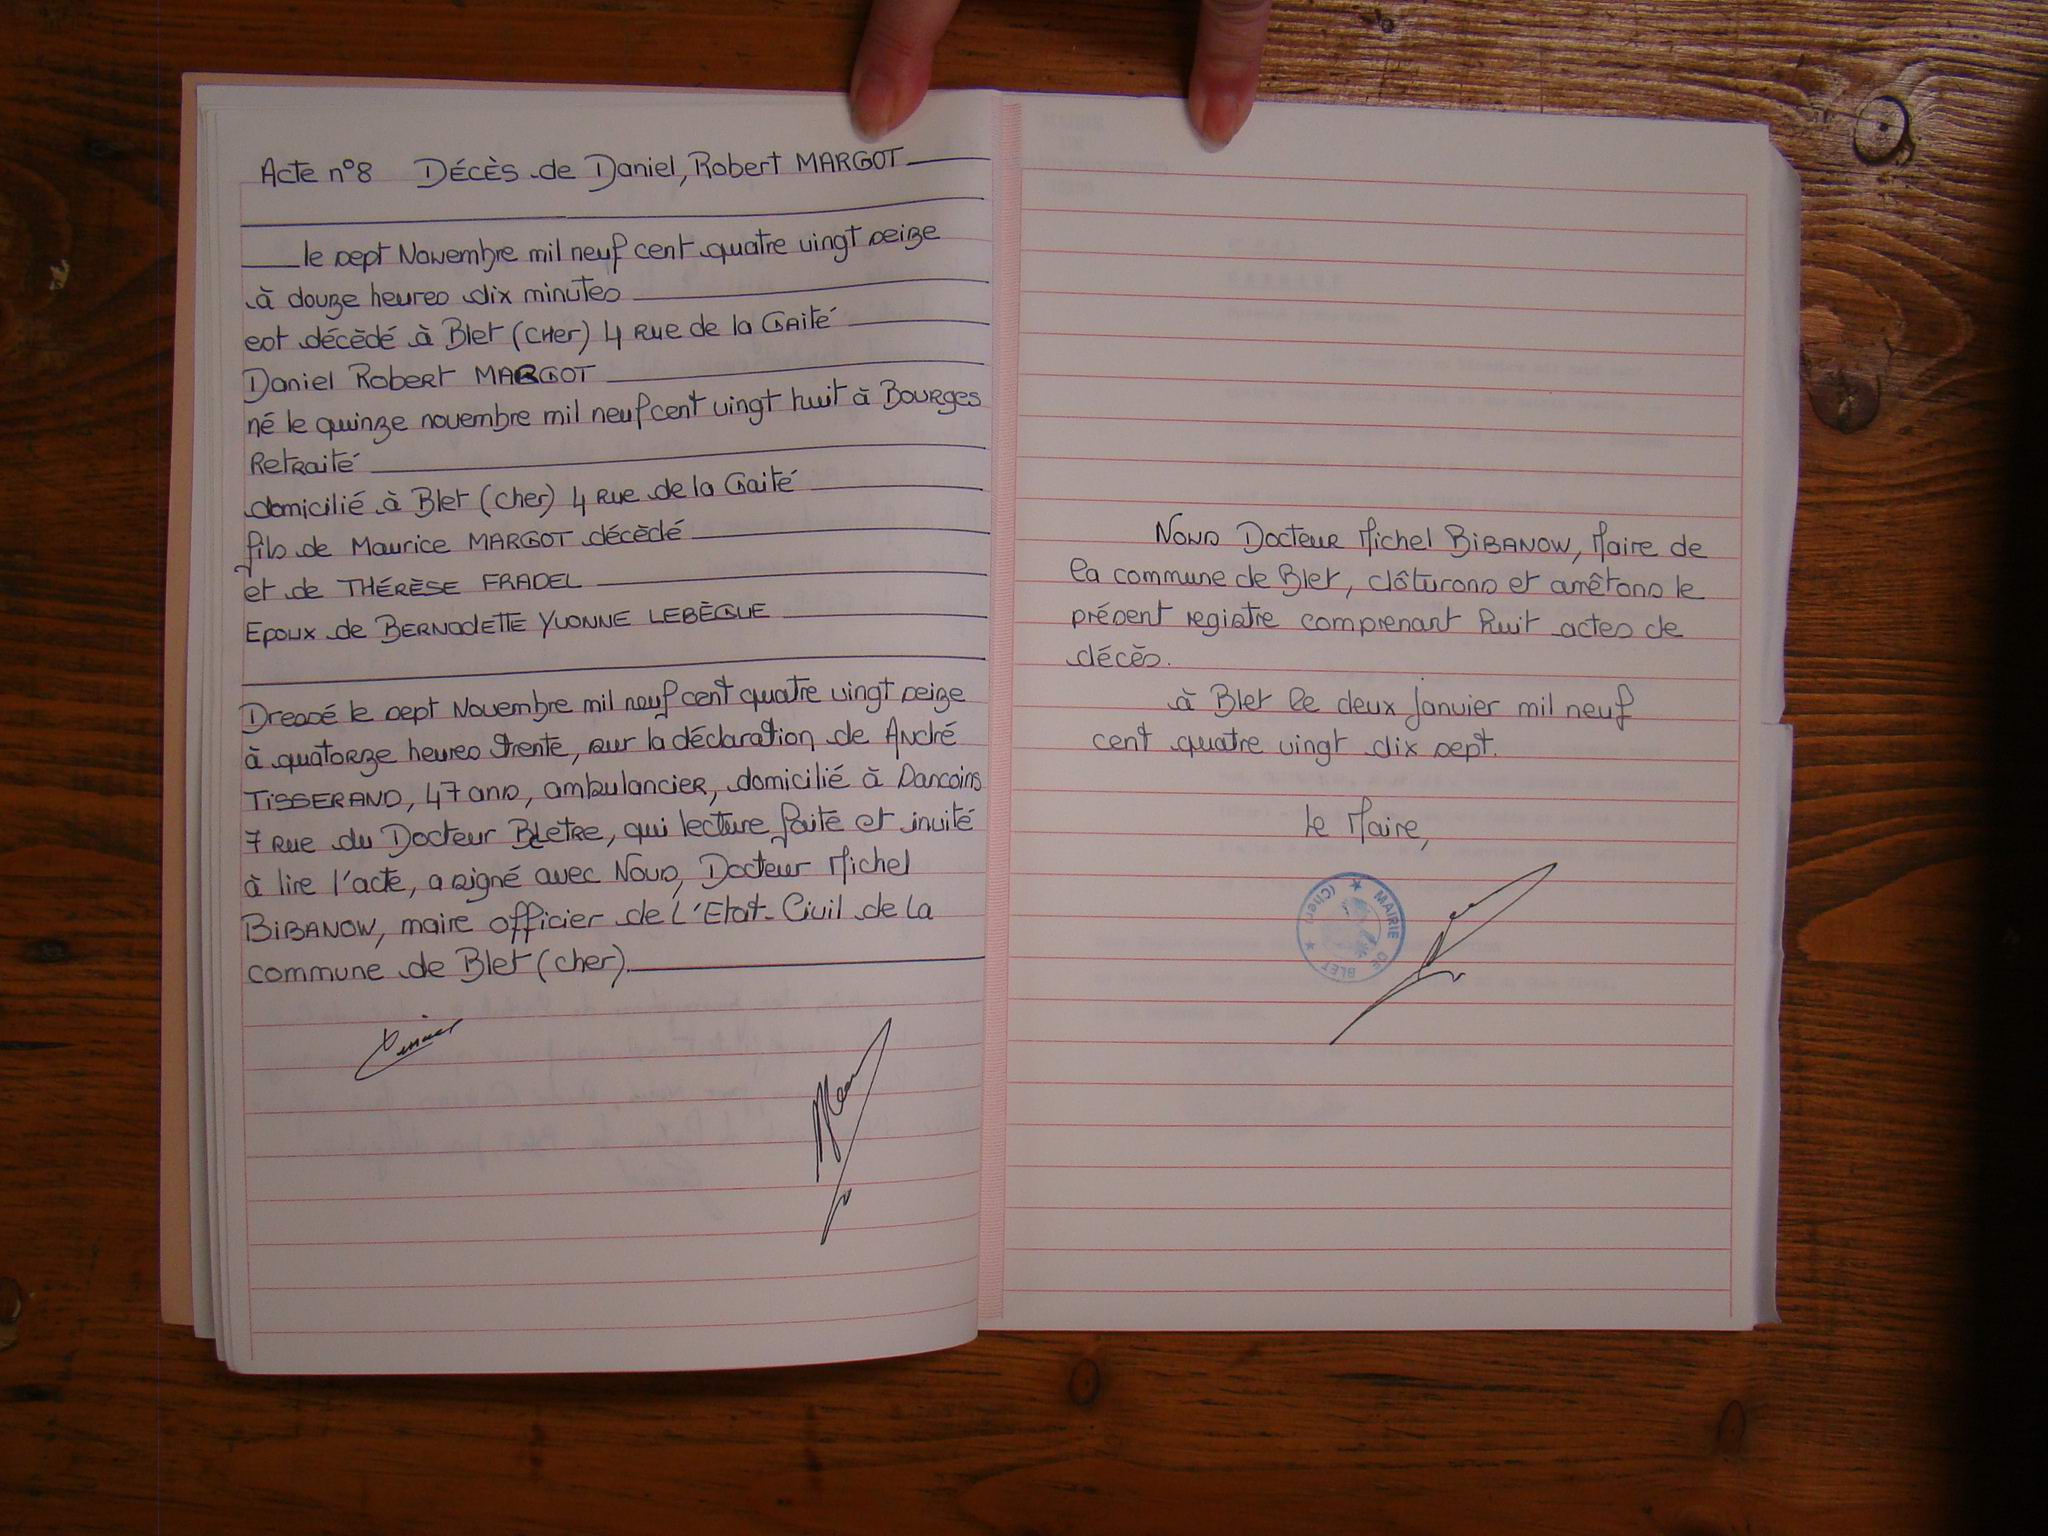 Acte n°8 DÉCÈS de Daniel, Robert MARGOT
le sept Novembre mil neuf cent quatre vingt seize
à douze heures dix minutes
est décèdé à Blet (CHer) 4 Rue de la Gaité
Daniel Robert MARGOT
né le quinze novembre mil neuf cent vingt huit à Bourges
Retraité
domicilié à Blet (Cher) 4 Rue de la Gaité
fils de Maurice MARGOT décèdé
et de THÉRÈSE FRADEL
Epoux de BERNADETTE YVONNE LEBÈGUE
Dressé le sept Novembre mil neuf cent quatre vingt seize
à quatorze heures trente, sur la déclaration de André
TISSERAND, 47 ans, ambulancier, domicilié à Sancoins
7 Rue du Docteur BLETRE, qui lecture faite et invité
à lire l'acte, a signé avec Nous, Docteur Michel
BIBANOW, maire officier de L'Etat-Civil de la
commune de Blet (Cher).
Nous Docteur Michel BIBANOW, Maire de
la commune de Blet, clôturons et arrêtons le
présent registre comprenant huit actes de
décès.
à Blet le deux Janvier mil neuf
cent quatre vingt dix sept.
Le Maire,
MAIRIE DE BLET (Cher)